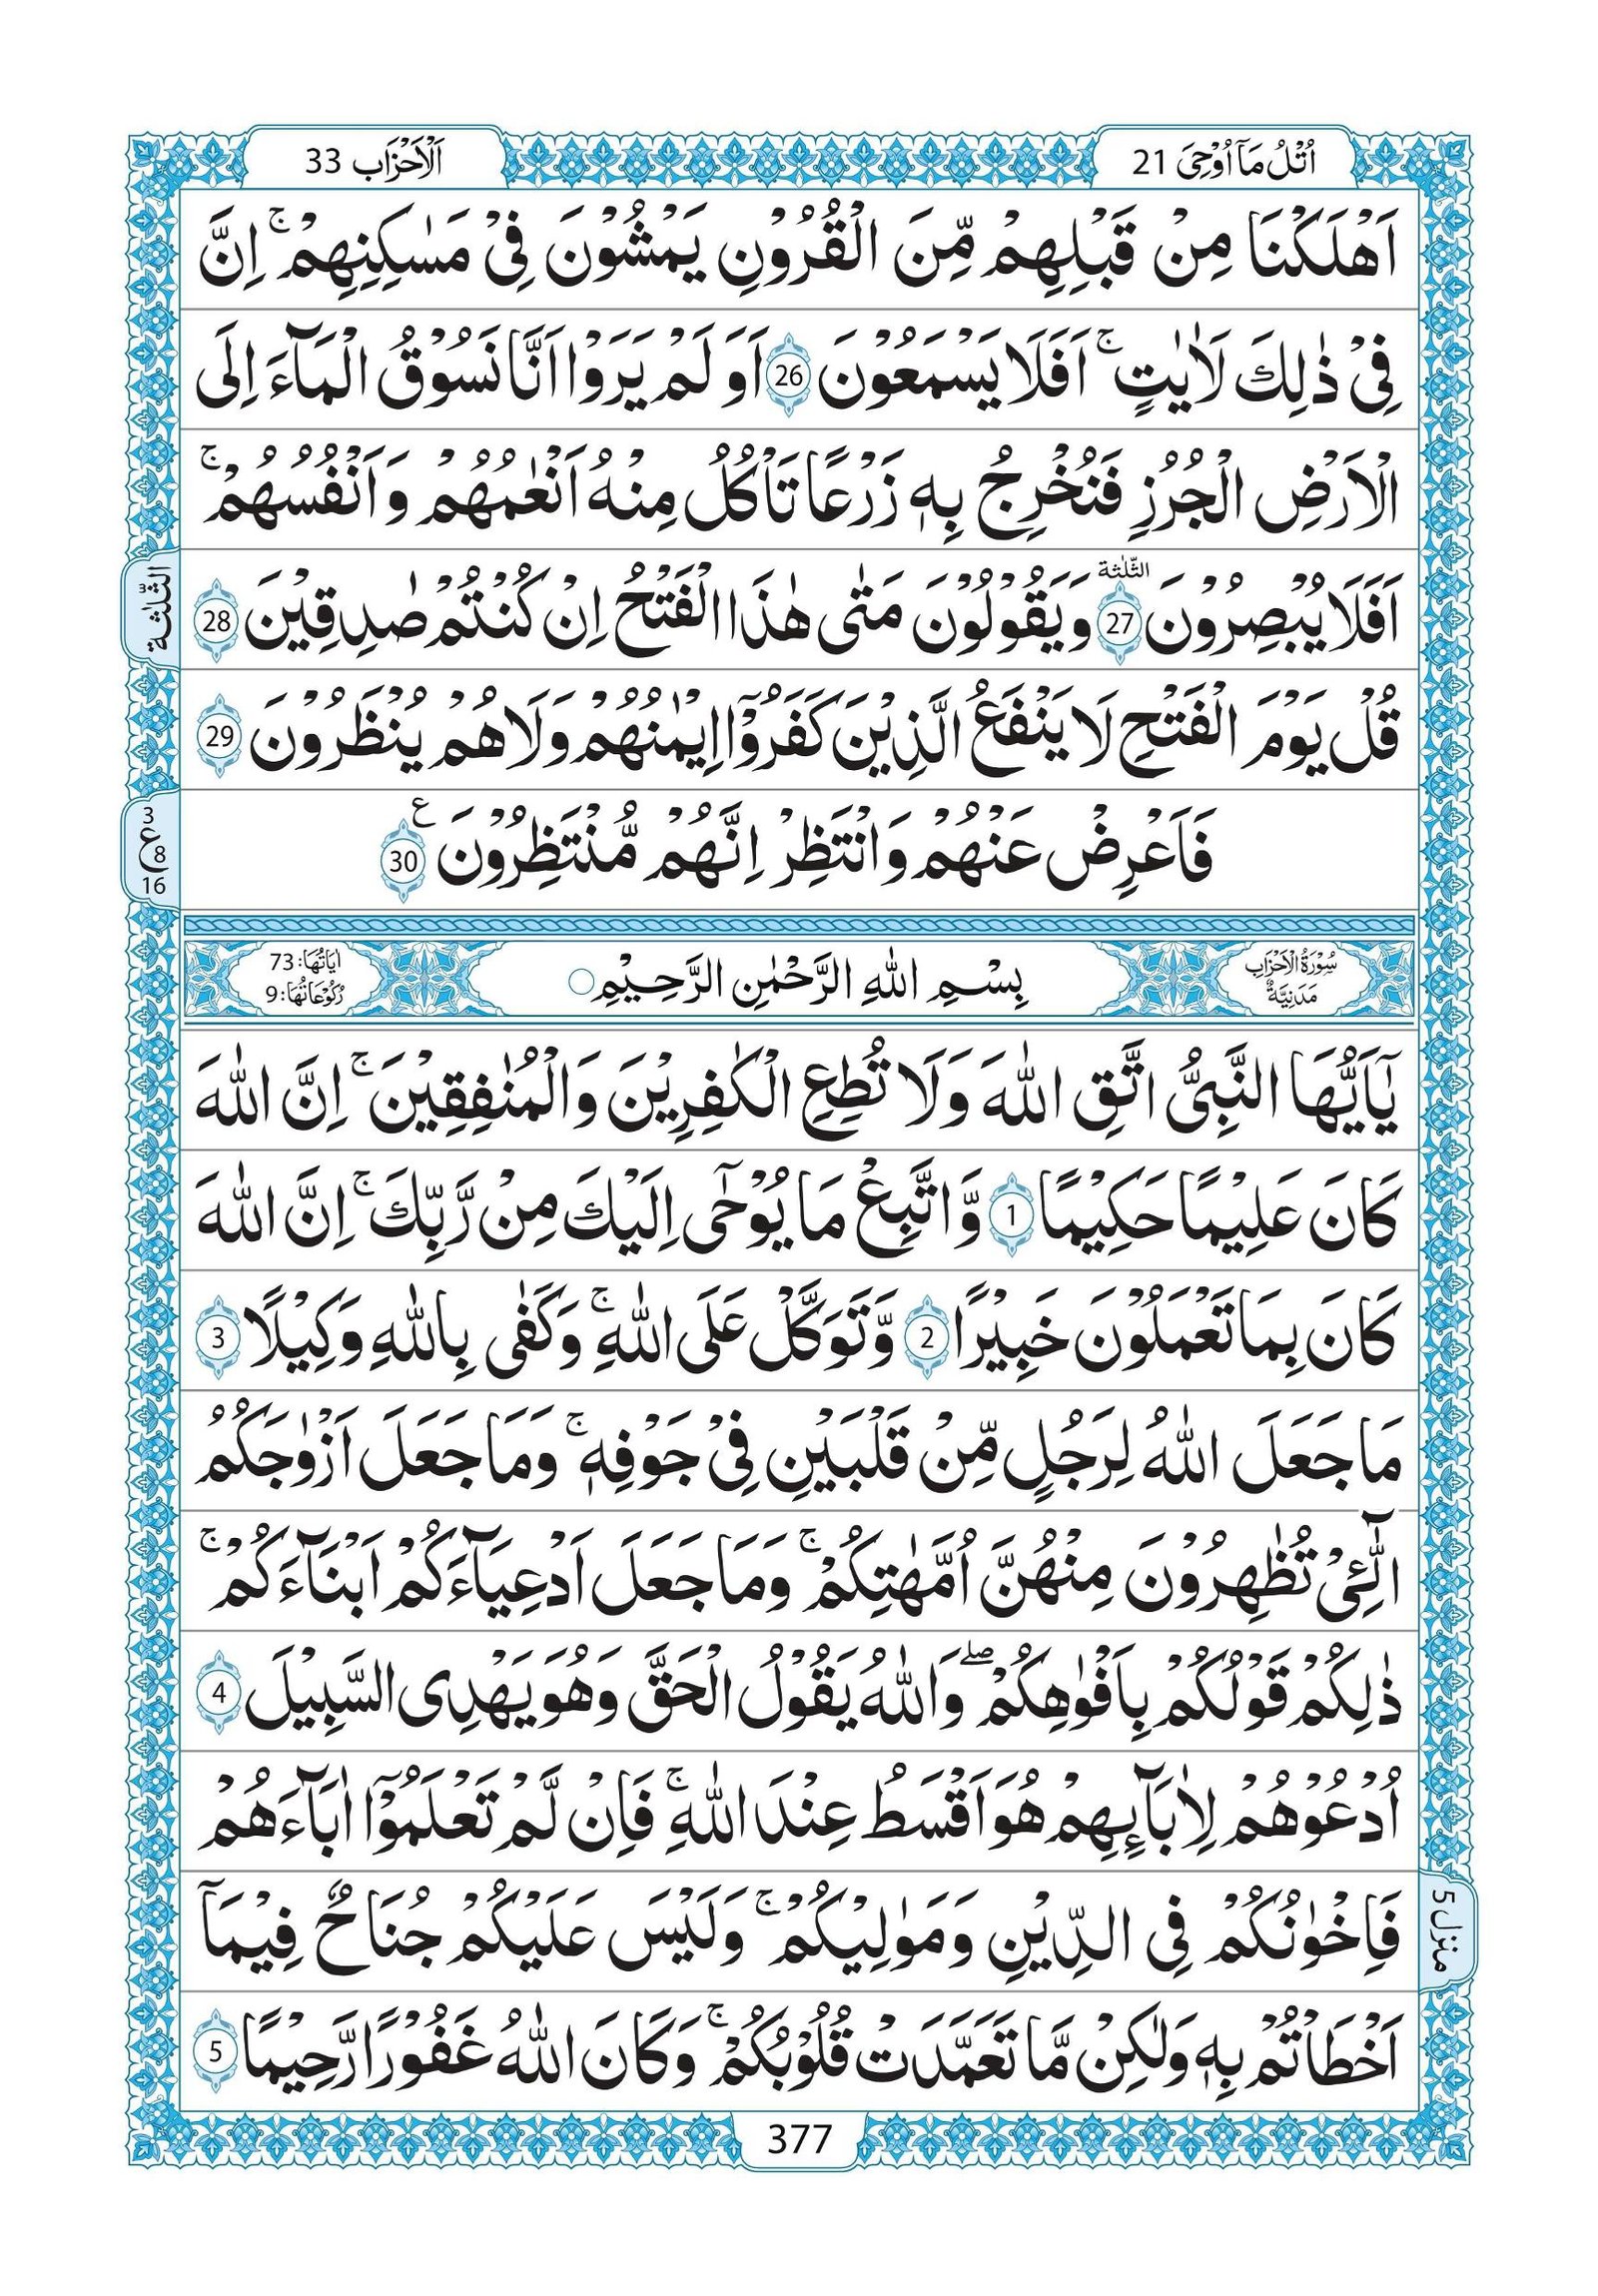 اُتْلُ مَآ اُوْحِیَ 21
اَلْاَحْزَاب 33
اَهْلَكْنَا مِنْ قَبْلِهِمْ مِّنَ الْقُرُوْنِ یَمْشُوْنَ فِیْ مَسٰكِنِهِمْ ۚ اِنَّ
فِیْ ذٰلِكَ لَاٰیٰتٍ ۚ اَفَلَا یَسْمَعُوْنَ 26 اَوَ لَمْ یَرَوْا اَنَّا نَسُوْقُ الْمَآءَ اِلَی
الْاَرْضِ الْجُرُزِ فَنُخْرِجُ بِهٖ زَرْعًا تَاْكُلُ مِنْهُ اَنْعٰمُهُمْ وَ اَنْفُسُهُمْ ۚ
اَفَلَا یُبْصِرُوْنَ 27 الثّلٰثة وَ یَقُوْلُوْنَ مَتٰی هٰذَا الْفَتْحُ اِنْ كُنْتُمْ صٰدِقِیْنَ 28
الثّلٰثة
قُلْ یَوْمَ الْفَتْحِ لَا یَنْفَعُ الَّذِیْنَ كَفَرُوْۤا اِیْمٰنُهُمْ وَلَا هُمْ یُنْظَرُوْنَ 29
فَاَعْرِضْ عَنْهُمْ وَانْتَظِرْ اِنَّهُمْ مُّنْتَظِرُوْنَ ع 30
3
ع 8
16
سُوْرَةُ الْاَحْزَابِ
مَدَنِیَّةٌ
بِسْمِ اللّٰهِ الرَّحْمٰنِ الرَّحِیْمِ
اٰیَاتُهَا: 73
رُكُوْعَاتُهَا: 9
یٰۤاَیُّهَا النَّبِیُّ اتَّقِ اللّٰهَ وَلَا تُطِعِ الْكٰفِرِیْنَ وَالْمُنٰفِقِیْنَ ۚ اِنَّ اللّٰهَ
كَانَ عَلِیْمًا حَكِیْمًا 1 وَّ اتَّبِعْ مَا یُوْحٰۤی اِلَیْكَ مِنْ رَّبِّكَ ۚ اِنَّ اللّٰهَ
كَانَ بِمَا تَعْمَلُوْنَ خَبِیْرًا 2 وَّ تَوَكَّلْ عَلَی اللّٰهِ ۚ وَكَفٰی بِاللّٰهِ وَكِیْلًا 3
مَا جَعَلَ اللّٰهُ لِرَجُلٍ مِّنْ قَلْبَیْنِ فِیْ جَوْفِهٖ ۚ وَمَا جَعَلَ اَزْوٰجَكُمُ
الّٰٓـِٔیْ تُظٰهِرُوْنَ مِنْهُنَّ اُمَّهٰتِكُمْ ۚ وَمَا جَعَلَ اَدْعِیَآءَكُمْ اَبْنَآءَكُمْ ۚ
ذٰلِكُمْ قَوْلُكُمْ بِاَفْوٰهِكُمْ ۖ وَاللّٰهُ یَقُوْلُ الْحَقَّ وَهُوَ یَهْدِی السَّبِیْلَ 4
اُدْعُوْهُمْ لِاٰبَآىِٕهِمْ هُوَ اَقْسَطُ عِنْدَ اللّٰهِ ۚ فَاِنْ لَّمْ تَعْلَمُوْۤا اٰبَآءَهُمْ
فَاِخْوٰنُكُمْ فِی الدِّیْنِ وَمَوٰلِیْكُمْ ۚ وَلَیْسَ عَلَیْكُمْ جُنَاحٌ فِیْمَاۤ
منزل 5
اَخْطَاْتُمْ بِهٖ وَلٰكِنْ مَّا تَعَمَّدَتْ قُلُوْبُكُمْ ۚ وَكَانَ اللّٰهُ غَفُوْرًا رَّحِیْمًا 5
377